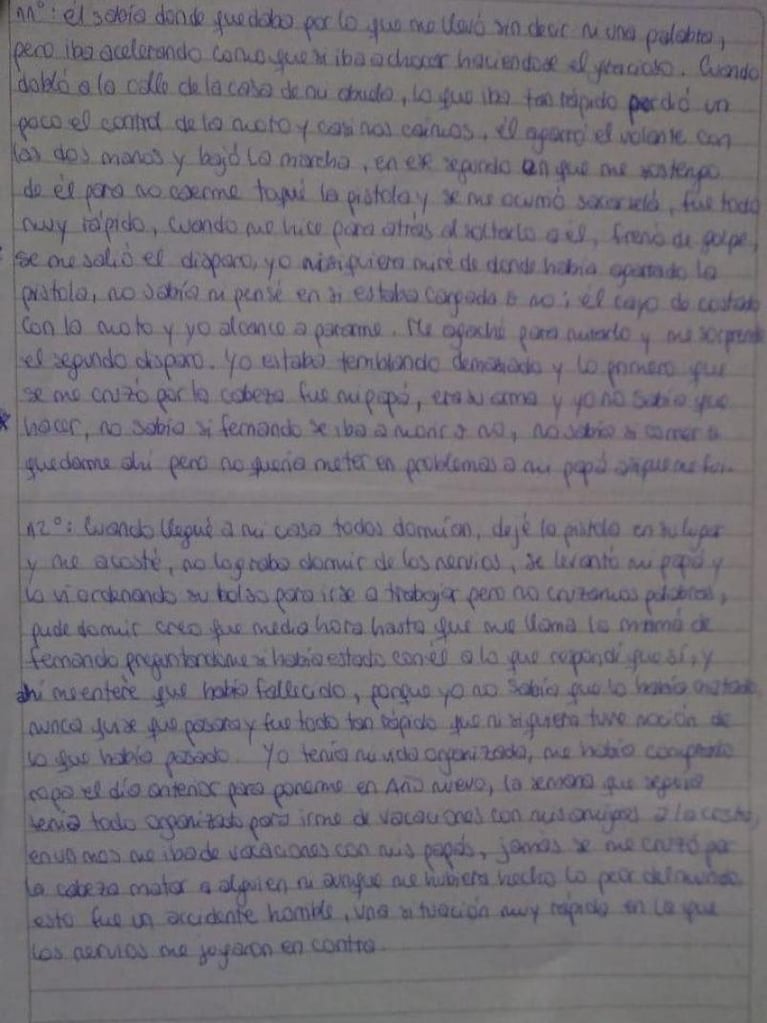 11°: él sabía donde quedaba por lo que me llevó sin decir ni una palabra,
pero iba acelerando como que si iba a chocar haciendose el gracioso. Cuando
dobló a la calle de la casa de mi abuela, lo que iba tan rápido perdió un
poco el control de la moto y casi nos caimos, él agarró el volante con
las dos manos y bajó la marcha, en ese segundo en que me sostengo
de él para no caerme toqué la pistola y se me ocurrió sacarsela, fue todo
muy rápido, cuando me hice para atrás al soltarlo a él, frenó de golpe,
se me salió el disparo, yo ni siquiera miré de donde había agarrado la
pistola, no sabía ni pensé en si estaba cargada o no; él cayo de costado
con la moto y yo alcanzo a pararme. Me agaché para mirarlo y me sorprende
el segundo disparo. Yo estaba temblando demasiado y lo primero que
se me cruzó por la cabeza fue mi papá, era su arma y yo no sabia que
hacer, no sabía si fernando se iba a morir o no, no sabía si correr o
quedarme ahí pero no quería meter en problemas a mi papá asique me fui.
12°: Cuando llegué a mi casa todos dormían, dejé la pistola en su lugar
y me acosté, no lograba dormir de los nervios, se levantó mi papá y
lo vi ordenando su bolso para irse a trabajar pero no cruzamos palabras,
pude dormir creo que media hora hasta que me llama la mamá de
fernando preguntandome si había estado con él a lo que respondí que sí, y
ahí me enteré que había fallecido, porque yo no sabía que lo había matado,
nunca quise que pasara y fue todo tan rápido que ni siquiera tuve noción de
lo que había pasado. Yo tenía mi vida organizada, me había comprado
ropa el día anterior para ponerme en Año nuevo, la semana que seguía
tenía todo organizado para irme de vacaciones con mis amigas a la costa,
en un mes me iba de vacaciones con mis papás, jamás se me cruzó por
la cabeza matar a alguien ni aunque me hubiera hecho lo peor del mundo
esto fue un accidente horrible, una situación muy rápida en la que
los nervios me jugaron en contra.